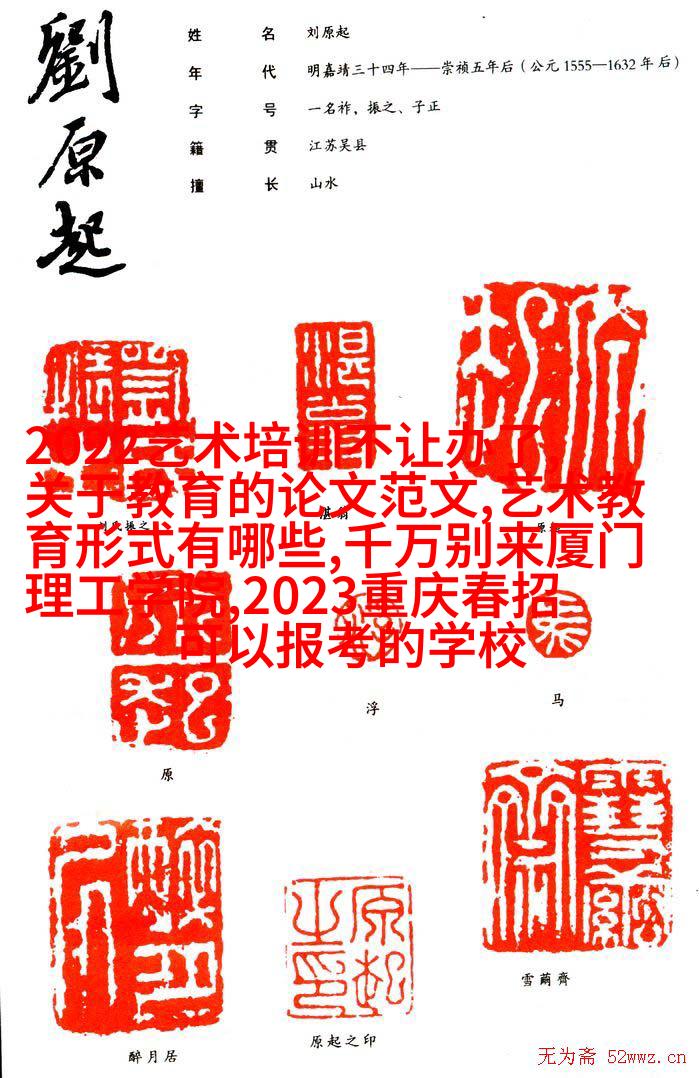 劉原起
姓名 刘原起
年代 明嘉靖三十四年——崇祯五年后（公元1555—1632年后）
字号 一名祚，振之、子正
籍贯 江苏吴县
擅长 山水
2022艺术培训不让办了,
关于教育的论文范文,艺术教
育形式有哪些,千万别来厦门
理工学院,2023重庆春招
可以报考的学校
刘氏振之
湛翁
原起
原
浮
马
醉月居
原起之印
雪萳齊
原起之印
无为斋 52wwz.cn